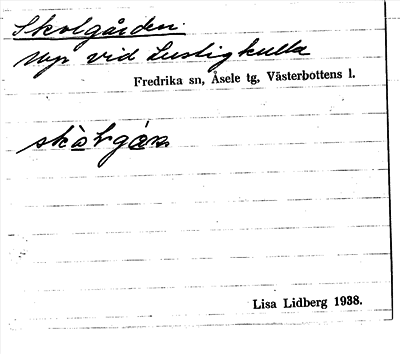 Skolgården.
upp vid Lustigkulla
Fredrika sn, Åsele tg, Västerbottens l.
Lisa Lidberg 1938.